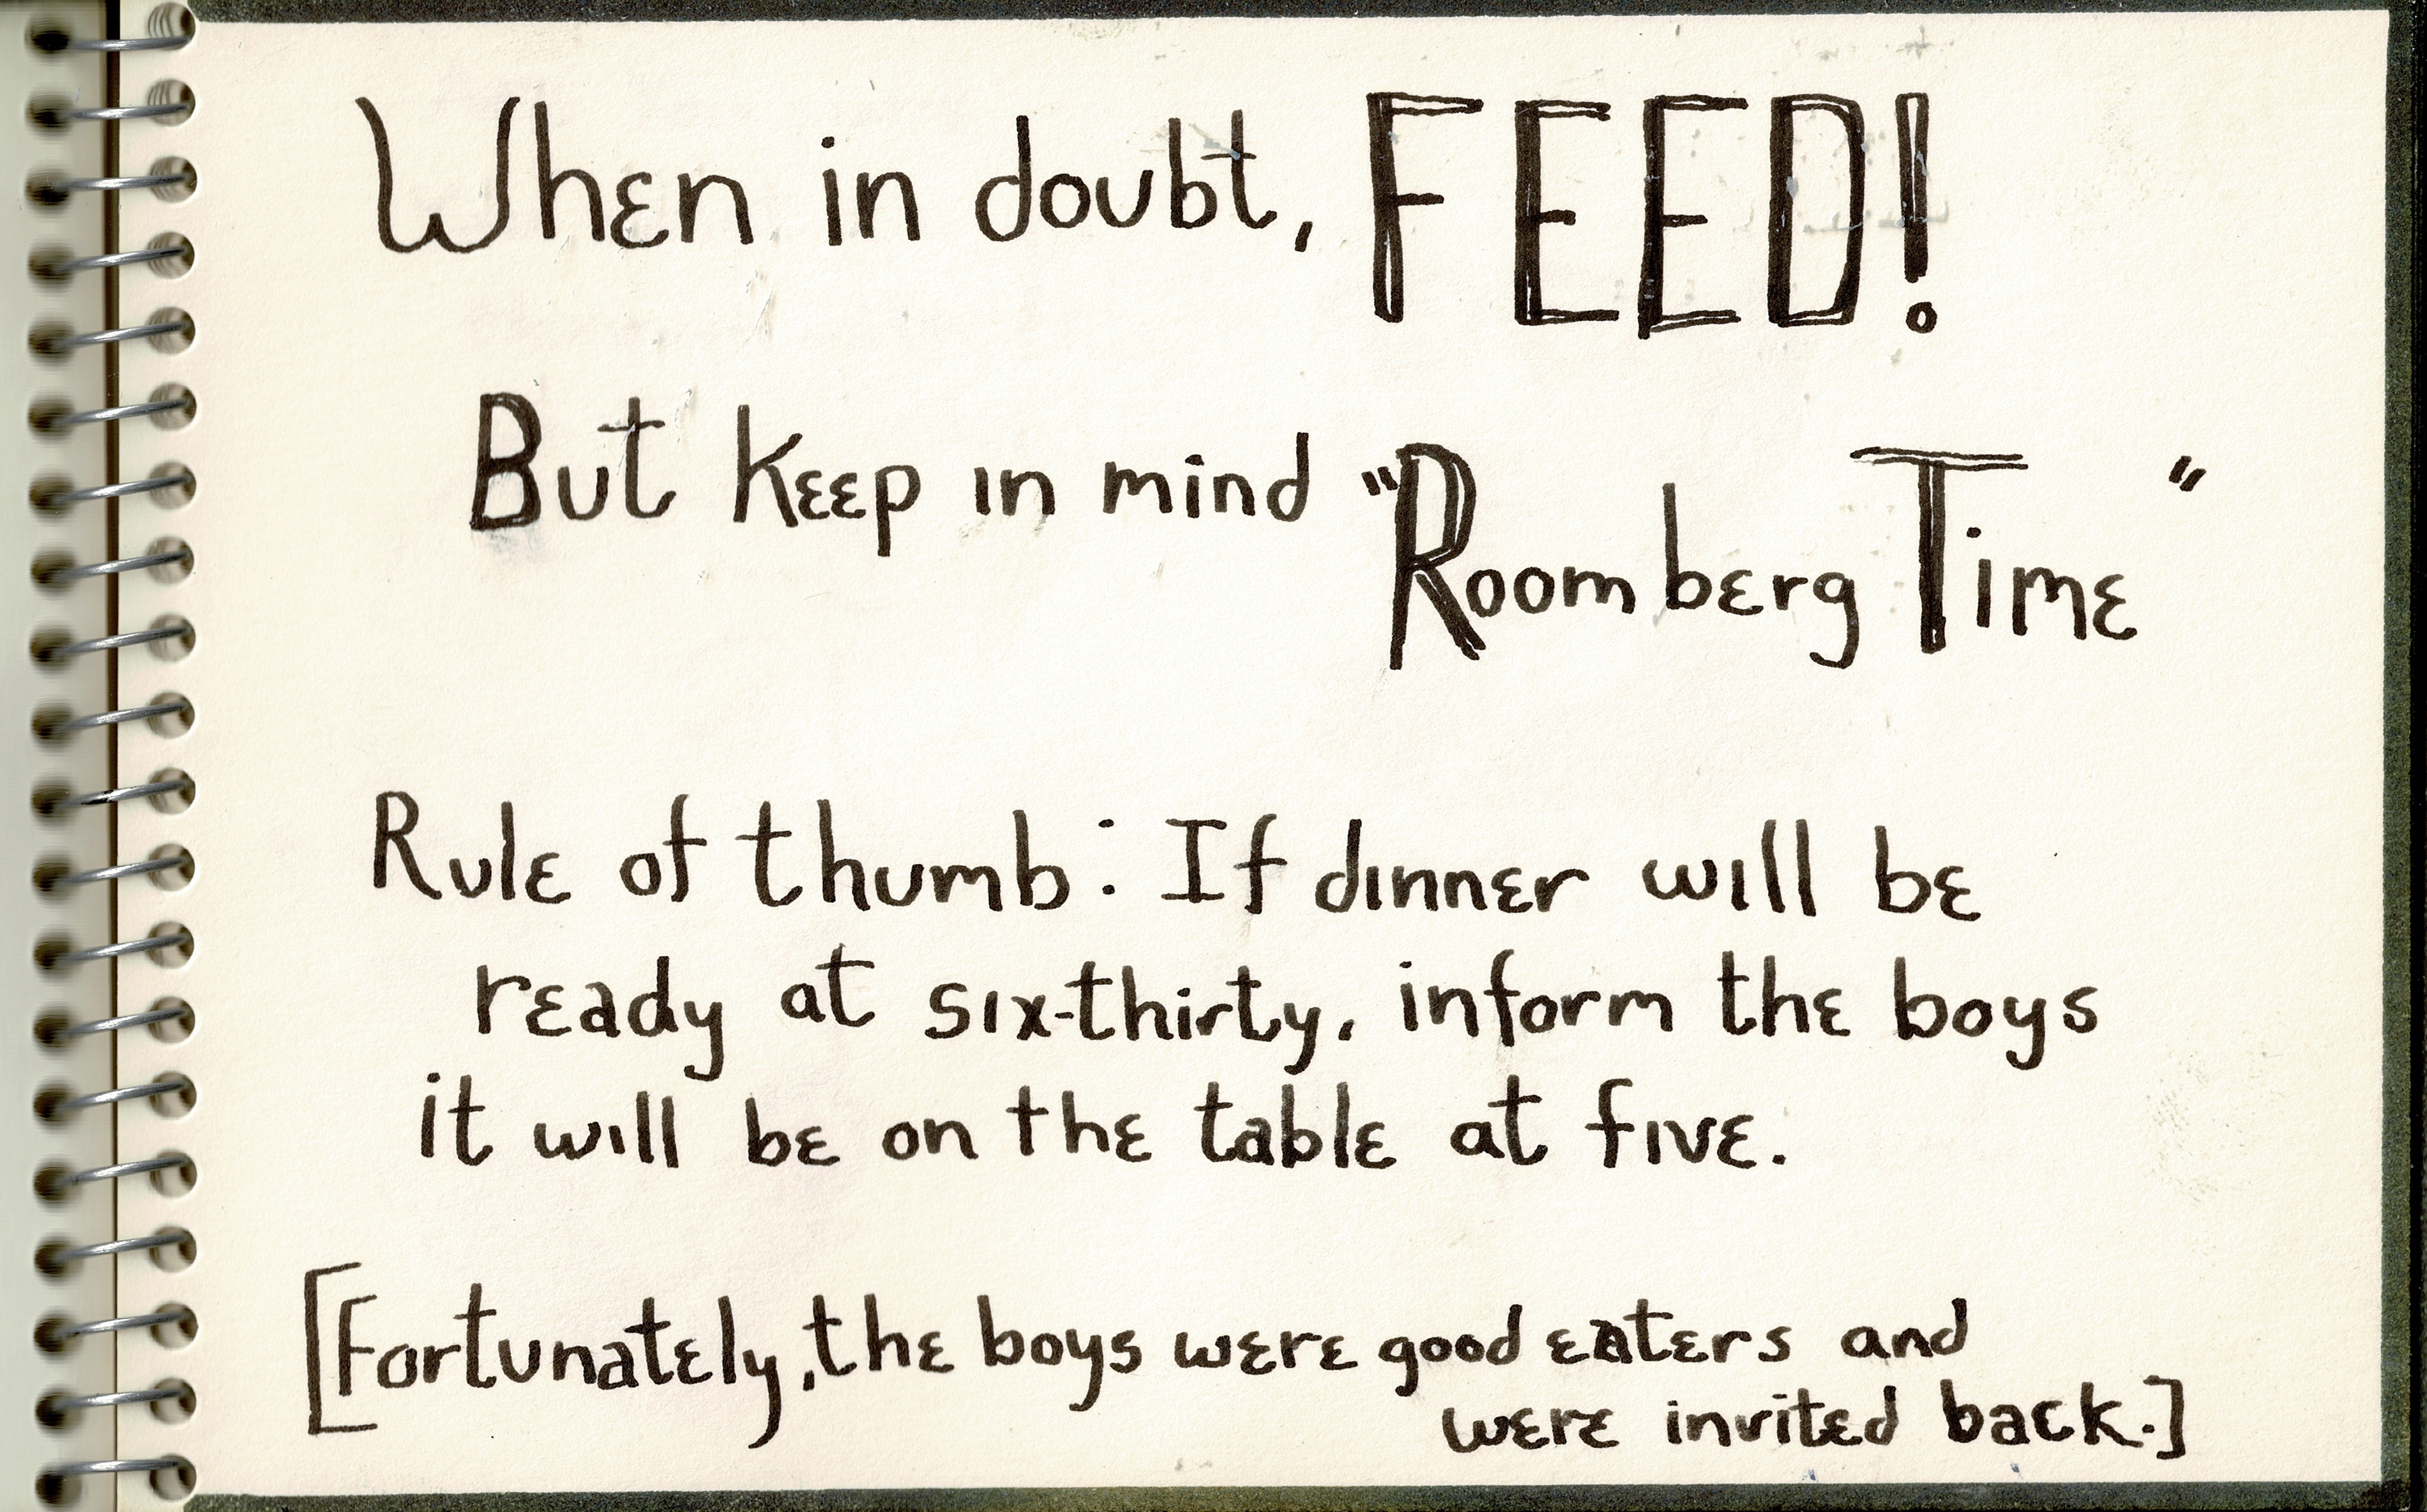 When in doubt, FEED!
But keep in mind "Roomberg Time"
Rule of thumb: If dinner will be
ready at six-thirty, inform the boys
it will be on the table at five.
[Fortunately, the boys were good eaters and
were invited back.]